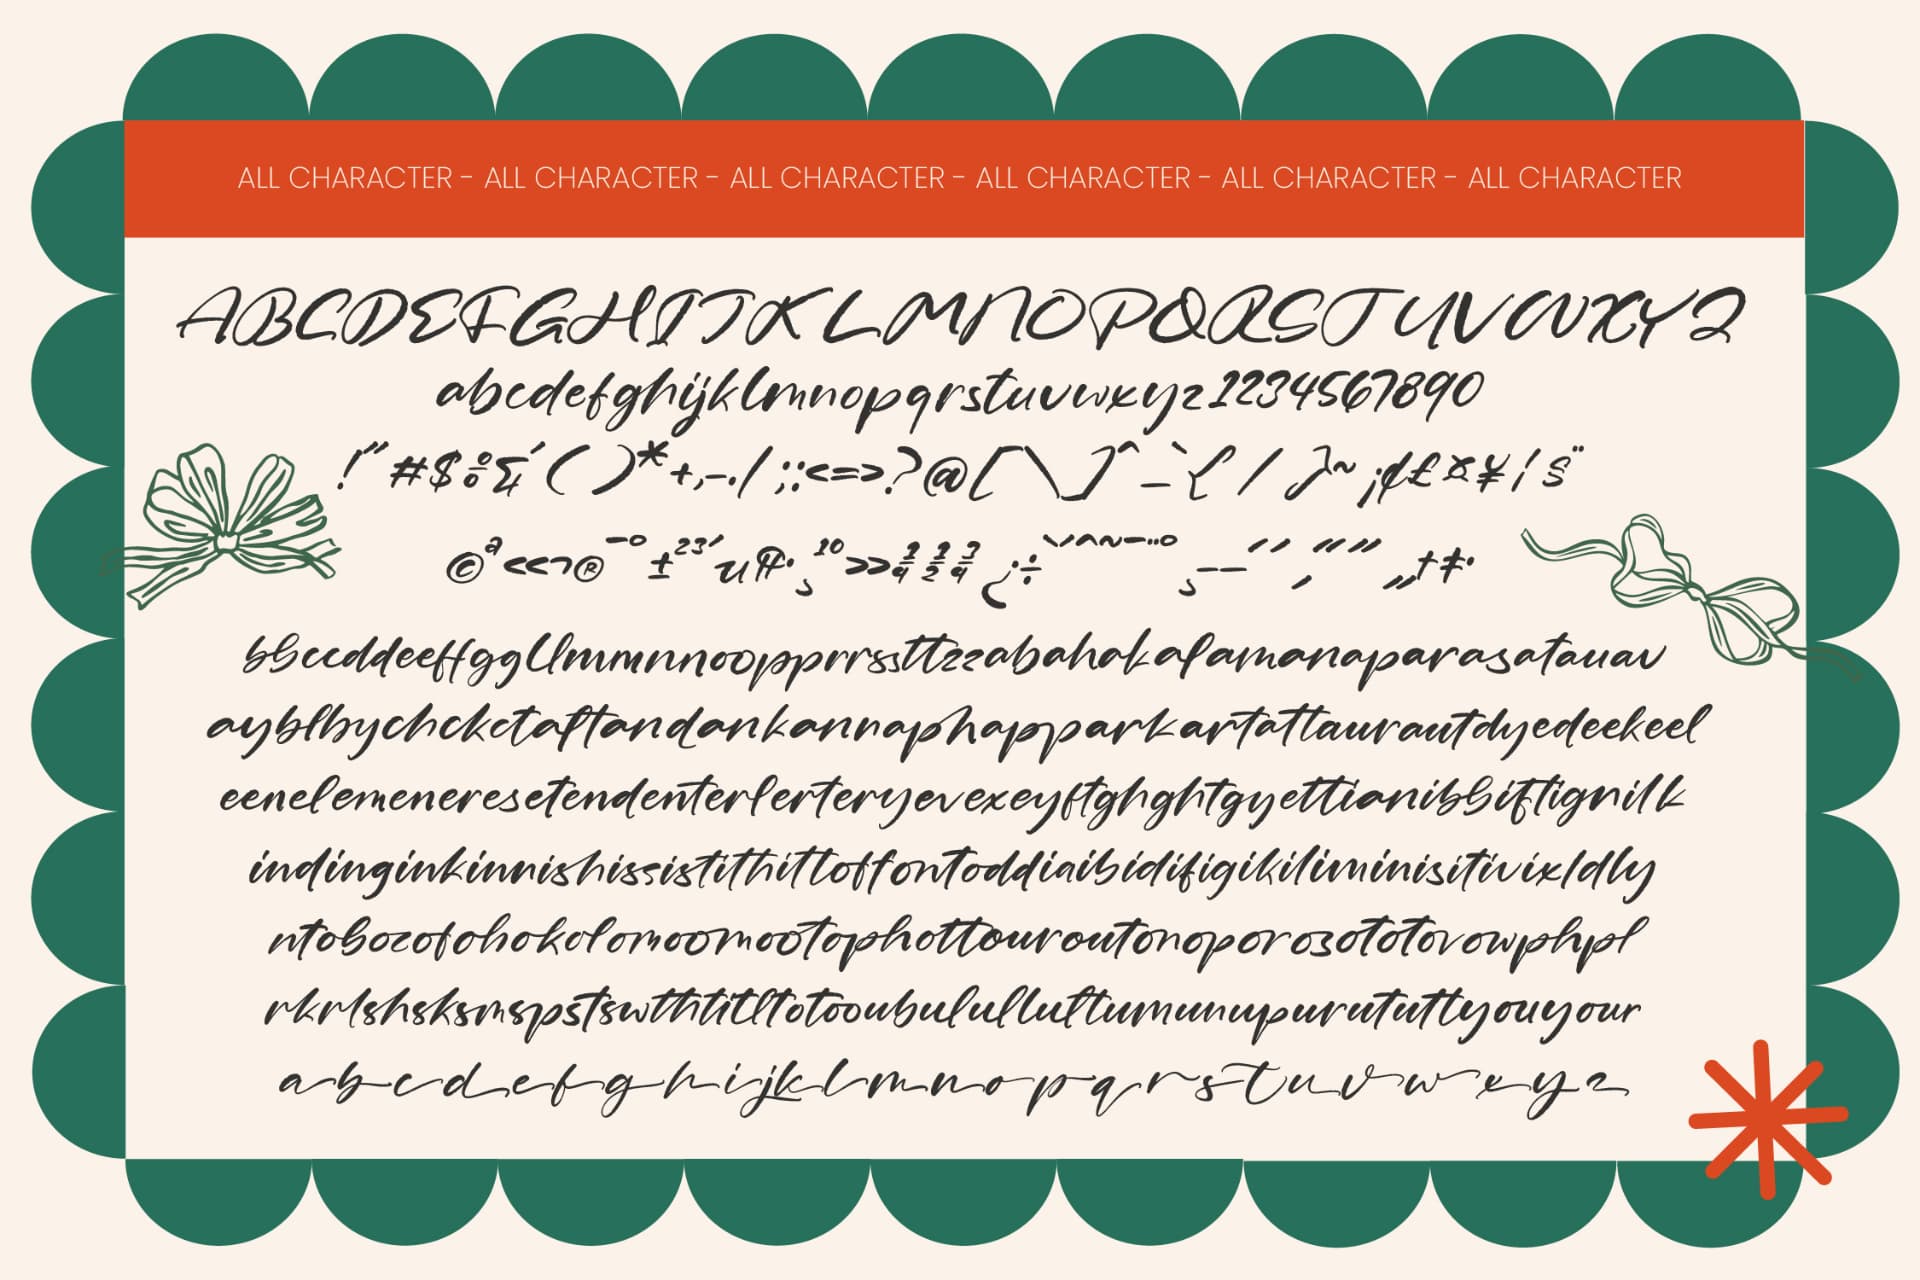 ALL CHARACTER - ALL CHARACTER - ALL CHARACTER - ALL CHARACTER - ALL CHARACTER - ALL CHARACTER
ABCDEFGHIJKLMNOPQRSTUVWXYZ
abcdefghijklmnopqrstuvwxyz1234567890
!"#$%&'()*+,-./;:<=>?@[\]^_`{/}~¡¢£¤¥¦§¨
©ª««¬®¯°±²³´µ¶·¸¹º»»¼½¾¿÷`´^~¯˙¨°¸–—‘’‚“”„†‡•
bbccddeeffggllmmnnooopprrssttzzabahakalamanaparasatauav
ayblbychckctaftandankannaphapparkartattaurautdyedeekeel
eenelemeneresetendenterlerteryevexeyftghghtgyettianibbiftignilk
indinginkinnishissistithitloffontoddiaibidifigikiliminisitivixldly
ntobocofohokolomoomootophottouroutonoporosototovowphpl
rkrlshsksmspstswthtitltotooubulullultumunupurututtyouyour
abcdefghijklmnopqrstuvwxyz